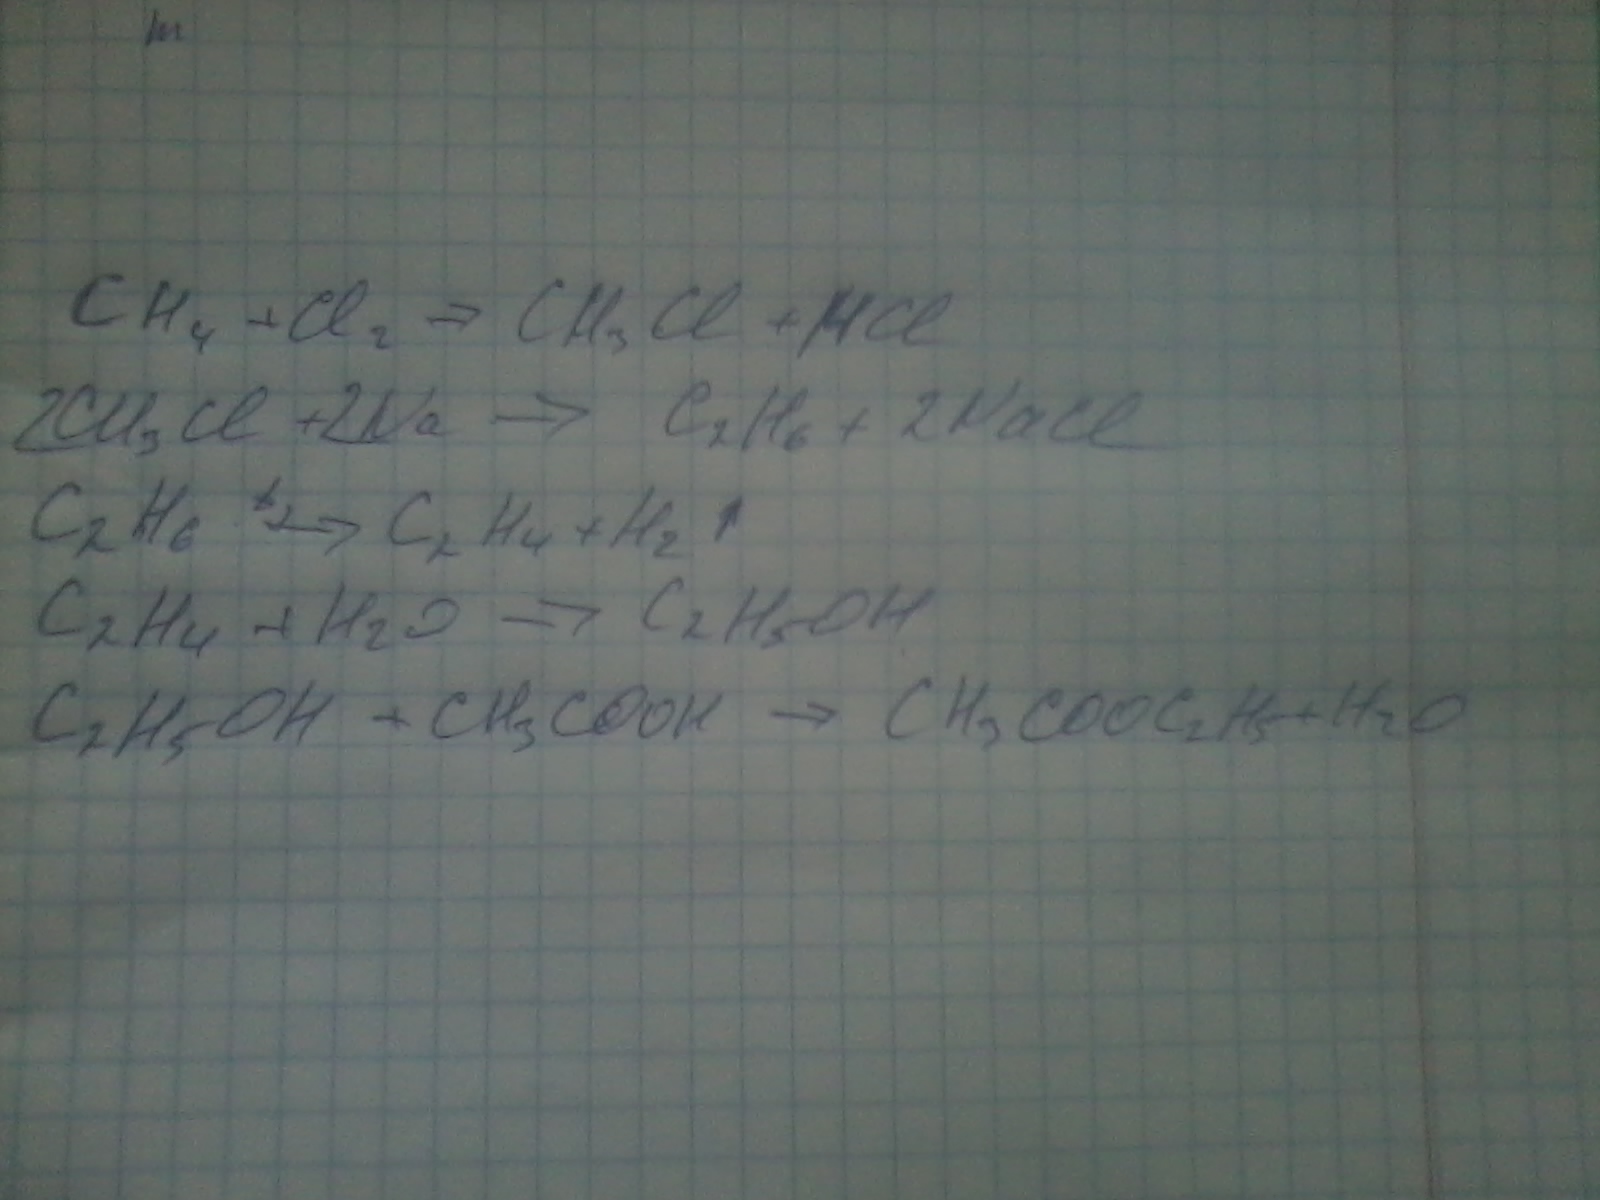 m
CH₄ + Cl₂ → CH₃Cl + HCl
2CH₃Cl + 2Na → C₂H₆ + 2NaCl
C₂H₆ t→ C₂H₄ + H₂↑
C₂H₄ + H₂O → C₂H₅OH
C₂H₅OH + CH₃COOH → CH₃COOC₂H₅ + H₂O